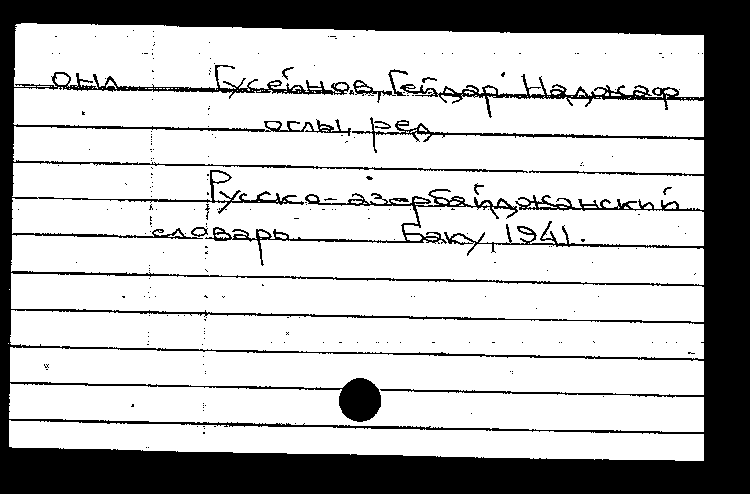 ОНЛ Гусейнов, Гейдар Наджаф
оглы, ред.
Русско-азербайджанский
словарь. Баку, 1941.